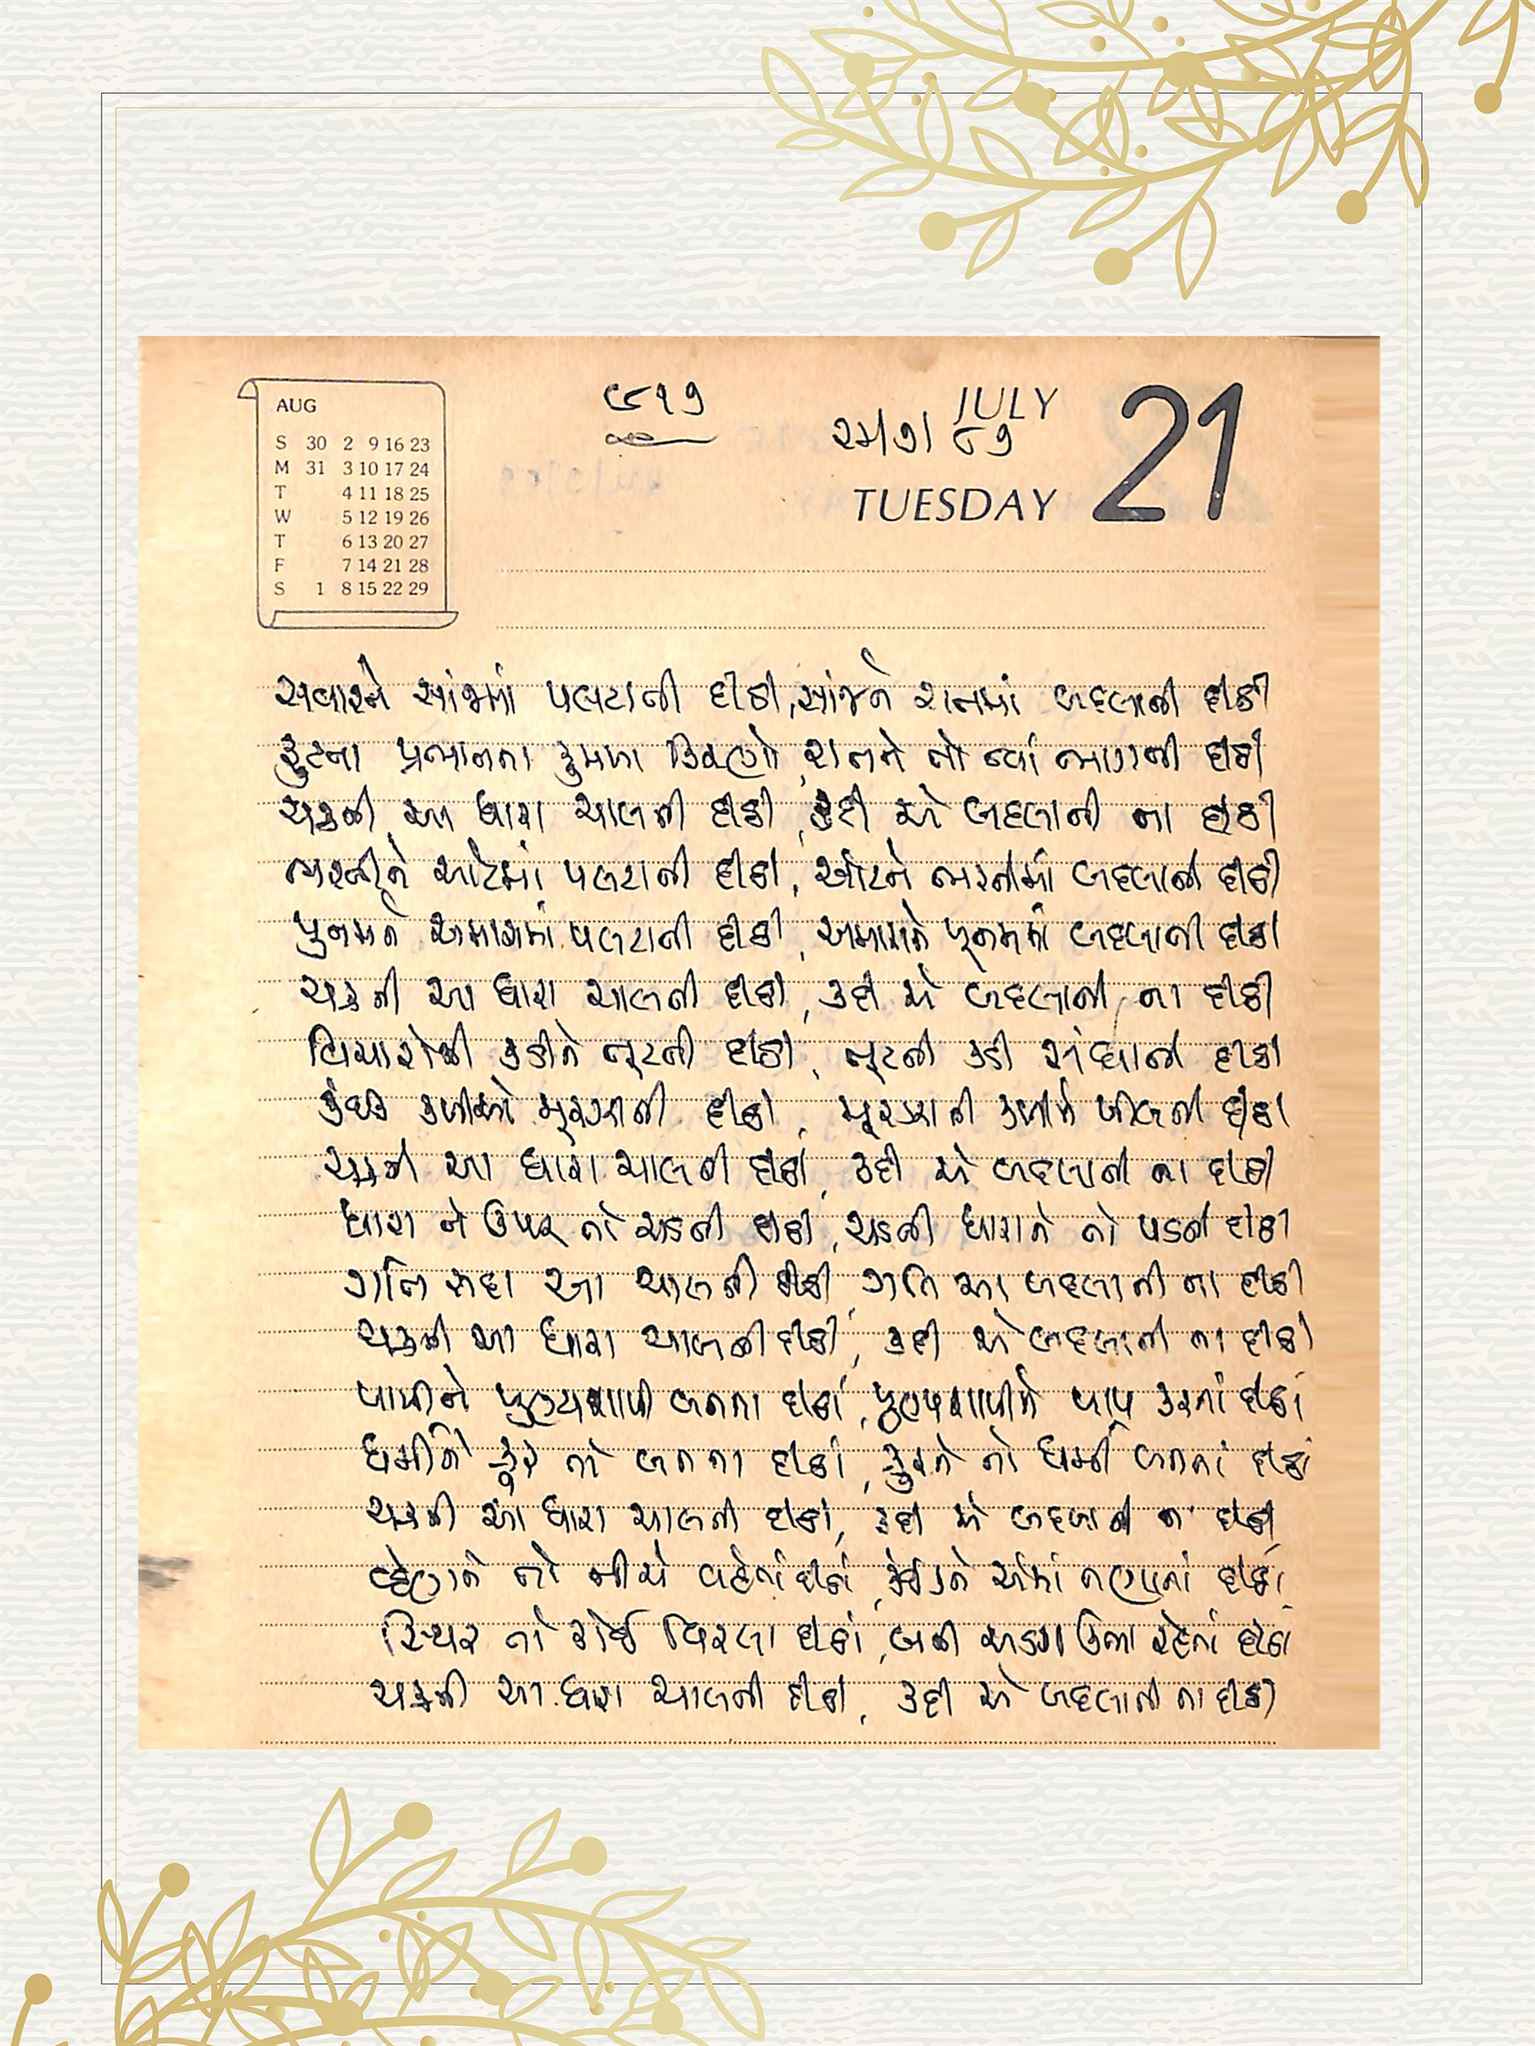 ૯૧૭
૨૫|૭|૮૭
JULY 21
TUESDAY
AUG
S 30 2 9 16 23
M 31 3 10 17 24
T 4 11 18 25
W 5 12 19 26
T 6 13 20 27
F 7 14 21 28
S 1 8 15 22 29
સવારને સાંજમાં પલટાતી દીઠી, સાંજને રાતમાં બદલાતી દીઠી
ફુટતા પ્રભાતના કુમળા કિરણો, રાતને તો ત્યાં ભાગતી દીઠી
ચક્રની આ ધારા ચાલતી દીઠી, કદી એ બદલાતી ના દીઠી
ભરતીને ઓટમાં પલટાતી દીઠી, ઓટને ભરતીમાં બદલાતી દીઠી
પુનમને અમાસમાં પલટાતી દીઠી, અમાસને પૂનમમાં બદલાતી દીઠી
ચક્રની આ ધારા ચાલતી દીઠી, કદી એ બદલાતી ના દીઠી
વિચારોની કડીને તૂટતી દીઠી, તૂટતી કડી સંધાતી દીઠી
કંઈક કળીઓ મૂરઝાતી દીઠી, મૂરઝાતી કળીને ખીલતી દીઠી
ચક્રની આ ધારા ચાલતી દીઠી, કદી એ બદલાતી ના દીઠી
ધારા ને ઉપર તો ચડતી દીઠી, ચડતી ધારાને તો પડતી દીઠી
ગતિ સદા આ ચાલતી દીઠી, ગતિ આ બદલાતી ના દીઠી
ચક્રની આ ધારા ચાલતી દીઠી, કદી એ બદલાતી ના દીઠી
પાપીને પુણ્યશાળી બનતા દીઠાં, પુણ્યશાળીને પાપ કરતાં દીઠાં
ધર્મીને ક્રૂર તો બનતા દીઠાં, ક્રુરને તો ધર્મી બનતાં દીઠાં
ચક્રની આ ધારા ચાલતી દીઠી, કદી એ બદલાતી ના દીઠી
વ્હેણને તો નીચે વહેતાં દીઠાં, કંઈકને એમાં તણાતાં દીઠાં
સ્થિર તો કોઈ વિરલા દીઠાં, બની અડગ ઊભા રહેતાં દીઠાં
ચક્રની આ ધારા ચાલતી દીઠી, કદી એ બદલાતી ના દીઠી